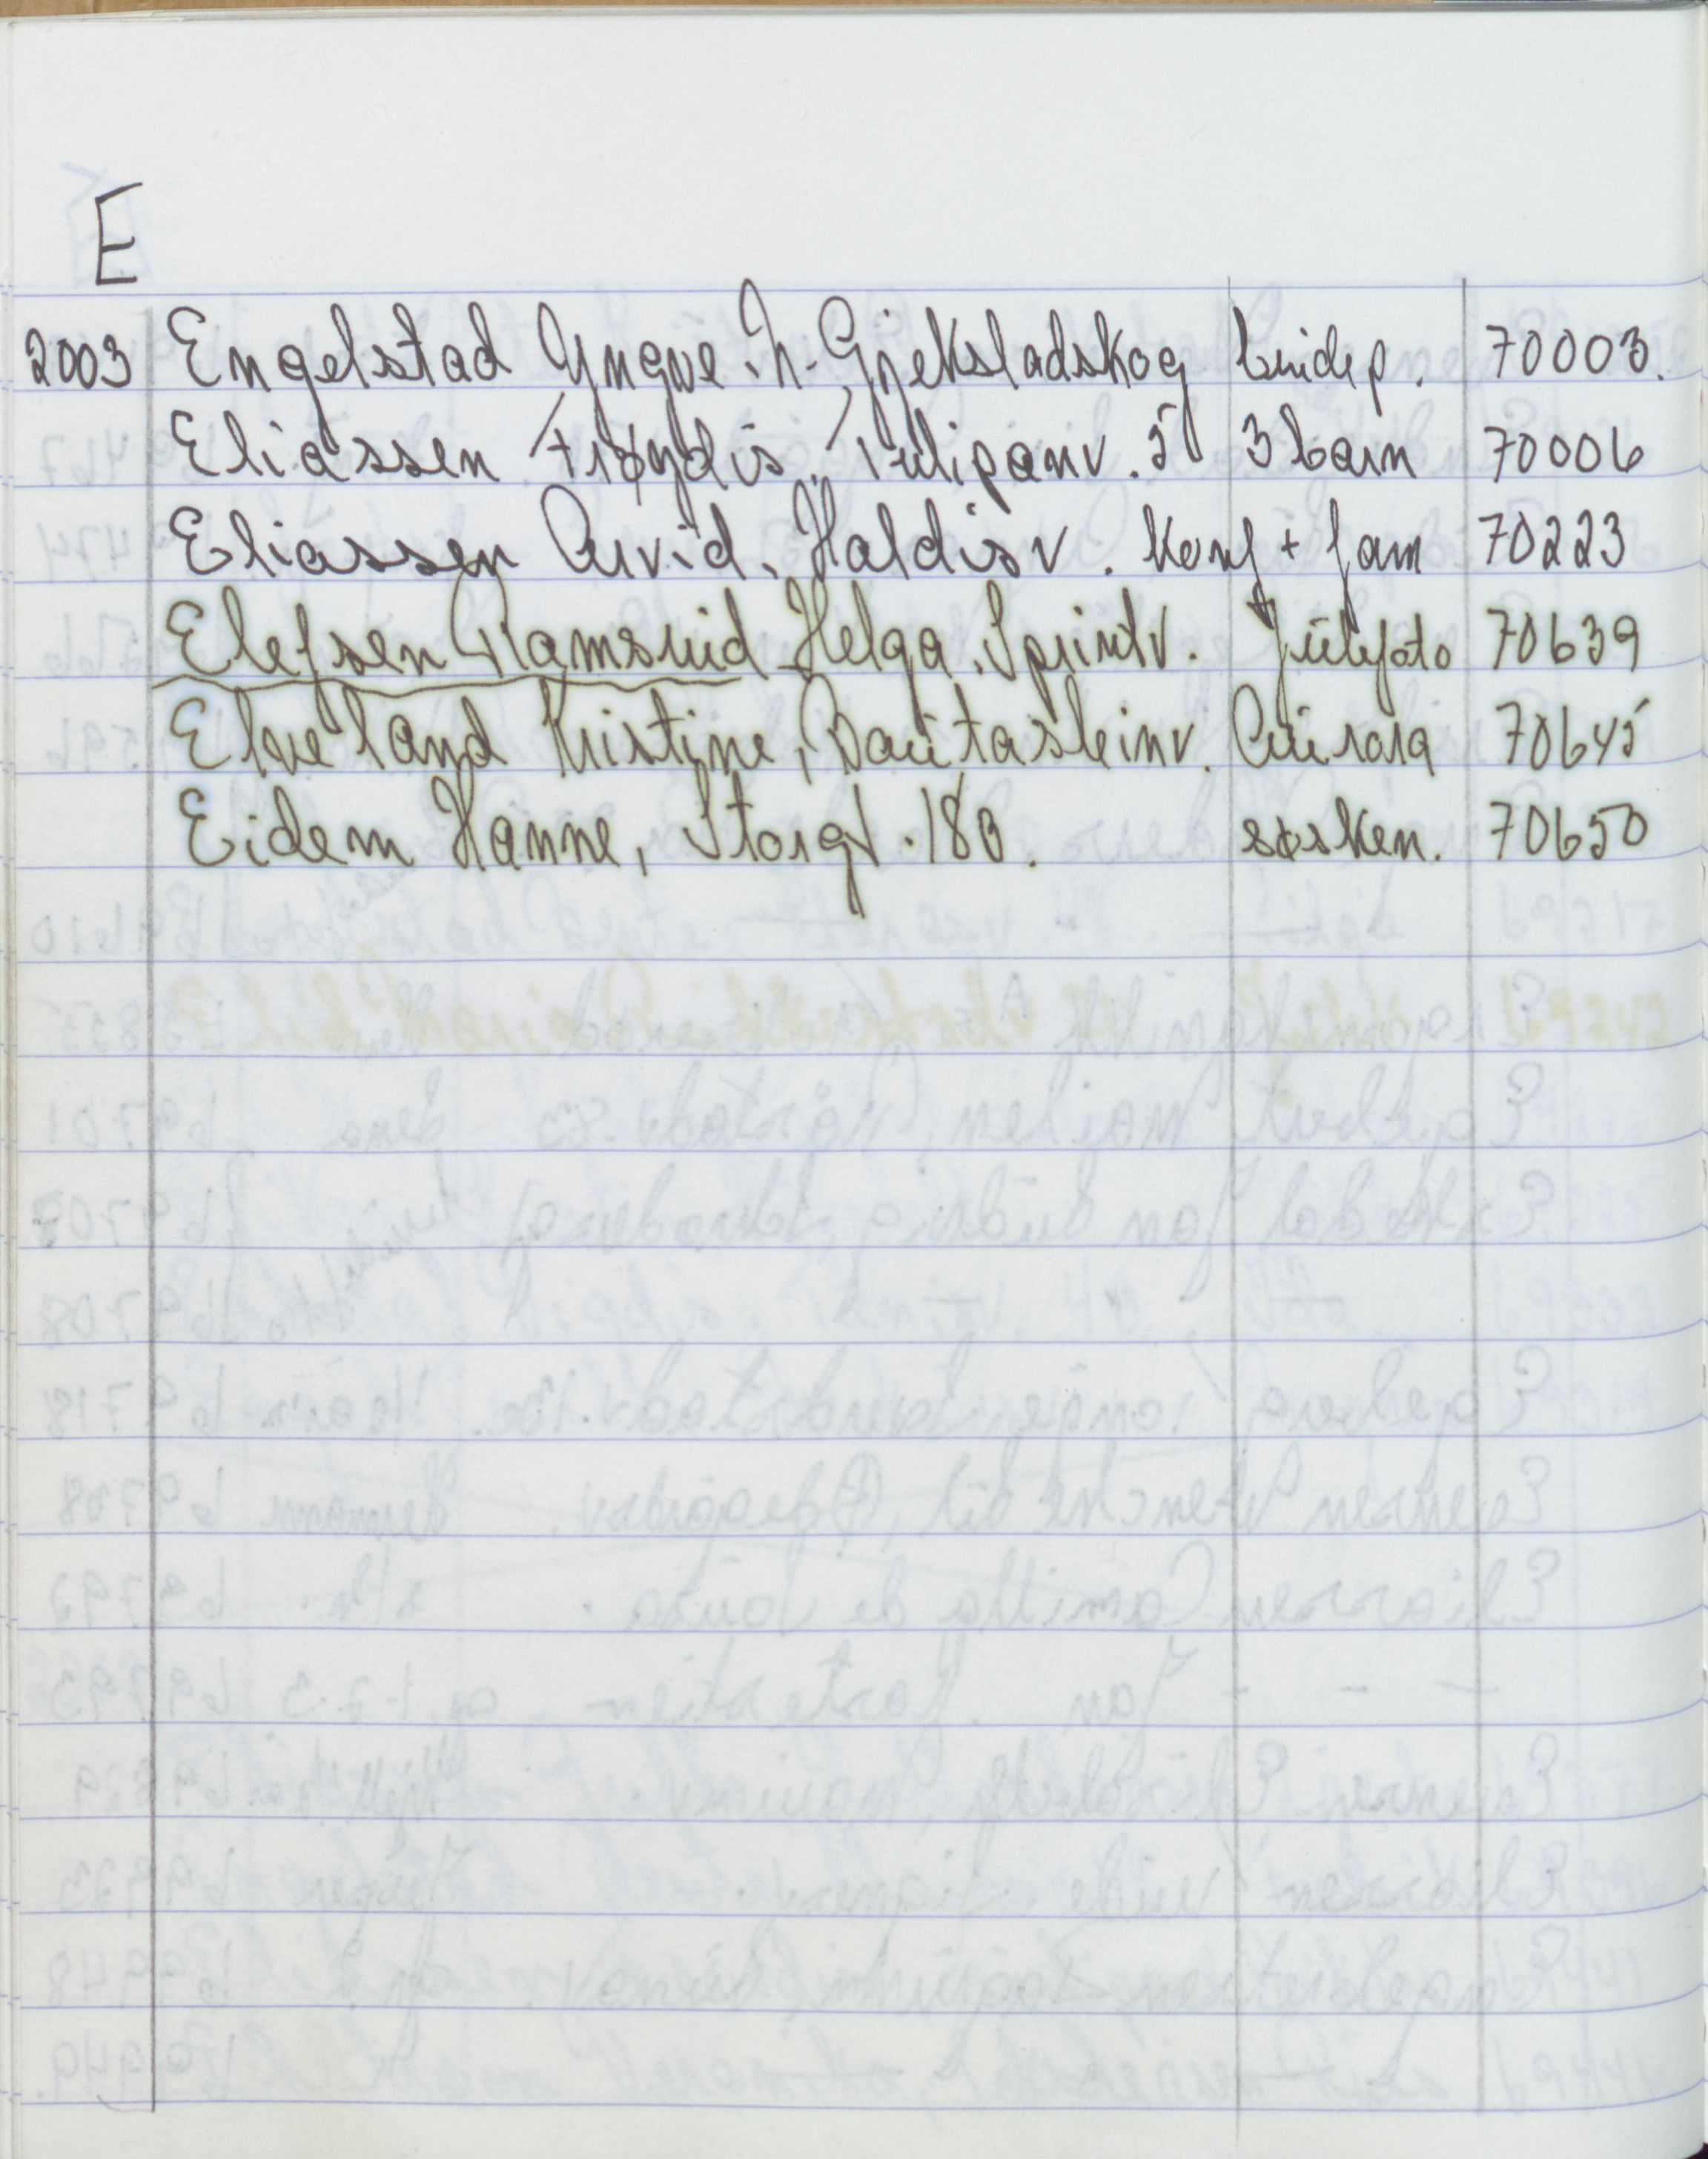 E
2003 Engelstad Yngve. N. Gjekstadskog brudep. 70003.
Eliassen Frøydis. Tulipanv. 5 3 barn 70006
Eliassen Arvid. Haldisv. Konf + fam 70223
Elefsen Ramsrud Helga. Sprintv. Julefoto 70639
Elveland Kristine, Bautasteinv. Aurora 70645
Eidem Hanne, Storgt. 180. søsken. 70650